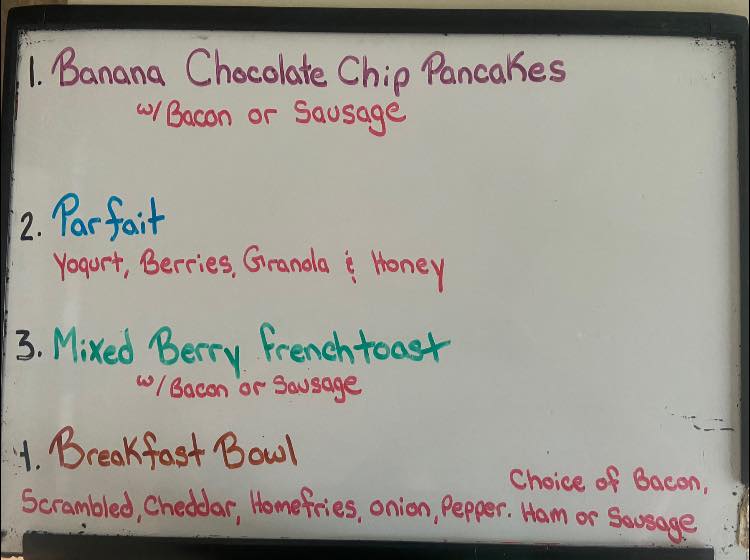 1. Banana Chocolate Chip Pancakes
w/ Bacon or Sausage
2. Parfait
Yogurt, Berries, Granola & Honey
3. Mixed Berry frenchtoast
w/ Bacon or Sausage
4. Breakfast Bowl
Choice of Bacon,
Scrambled, Cheddar, Homefries, onion, Pepper. Ham or Sausage